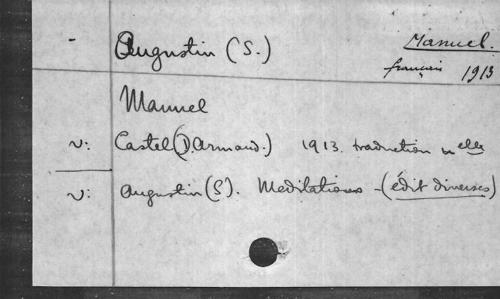 - Augustin (S.) Manuel.
français 1913
Manuel
v: Castel (D Armand.) 1913. traduction nelle
v: Augustin (S). Meditations - (édit diverses)